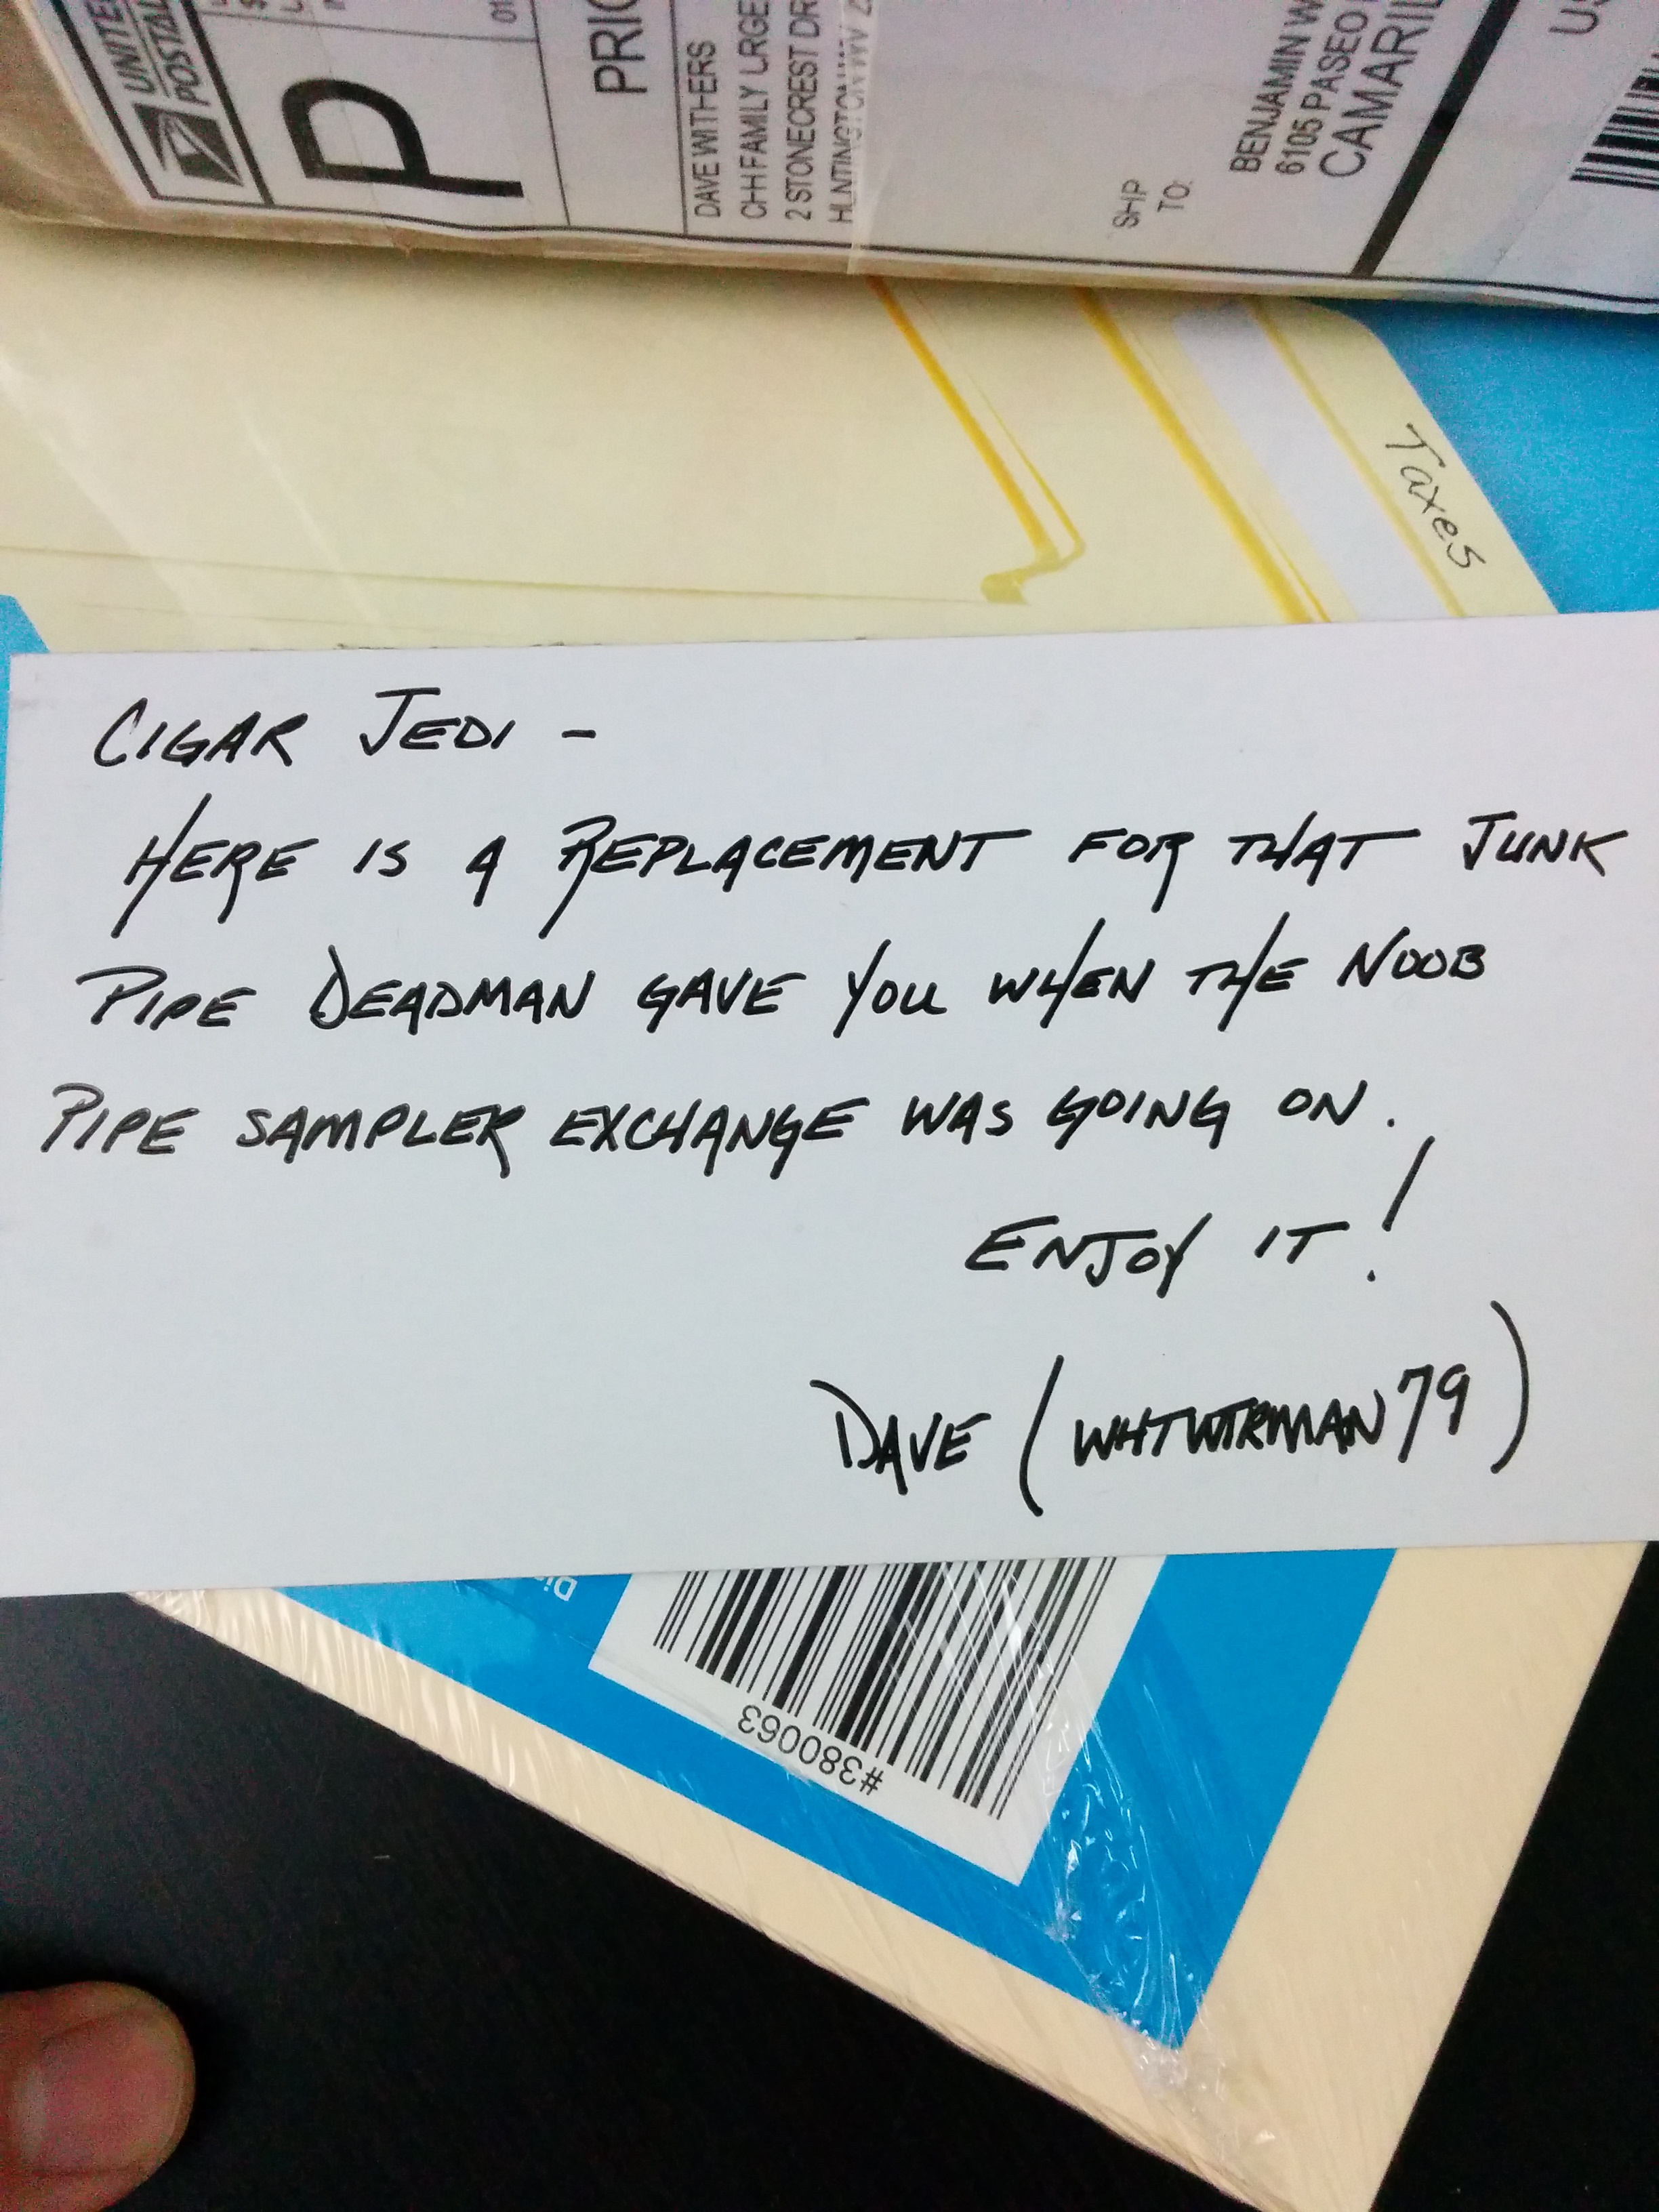 UNITE
POSTAL
P
01
PRIO
DAVE WITHERS
CHH FAMILY LRGE
2 STONECREST DR
HUNTINGTON WV
SHIP
TO:
BENJAMIN W
6105 PASEO
CAMARIL
US
Taxes
CIGAR JEDI -
HERE IS A REPLACEMENT FOR THAT JUNK
PIPE DEADMAN GAVE YOU WHEN THE NOOB
PIPE SAMPLER EXCHANGE WAS GOING ON.
ENJOY IT!
DAVE (WHTWTRMAN79)
#380063